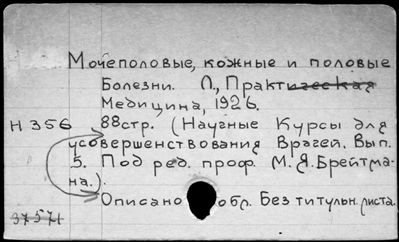 Мочеполовые, кожные и половые
Болезни. Л., Практическая
Медицина, 1926.
Н 356 88стр. (Научные Курсы для
усовершенствования Врачей. Вып.
5. Под ред. проф. М.Я. Брейтма-
на.).
Описано обл. Без титульн. листа.
37571